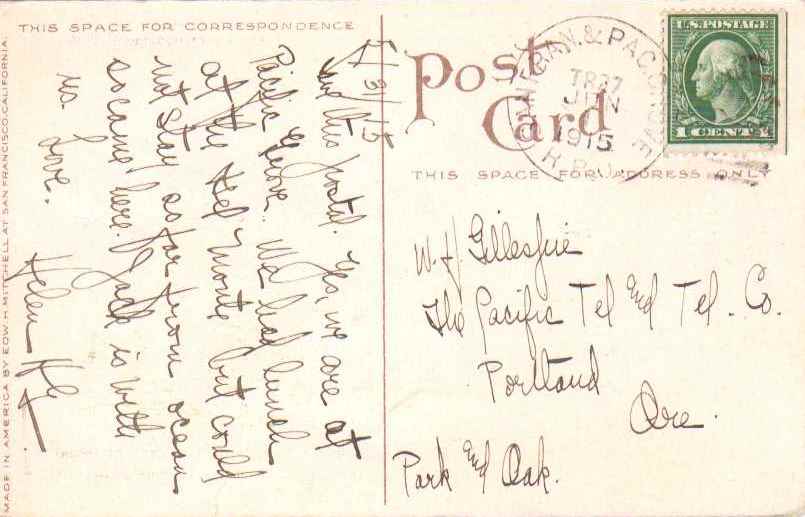 THIS SPACE FOR CORRESPONDENCE
6/3/15
And this postal. Yes, we are at
Pacific Grove. We had lunch
at the Del Monte but could
not stay so far from ocean
so came here. Jack is with
us. Love.
Helen
MADE IN AMERICA BY EDW. H. MITCHELL AT SAN FRANCISCO, CALIFORNIA.
Post
Card
SAN FRAN. & PAC. GROVE
TR 27
JUN
1915
R.P.O.
U.S. POSTAGE
1 CENT 1
THIS SPACE FOR ADDRESS ONLY
W. J. Gillespie
The Pacific Tel and Tel. Co.
Portland
Ore.
Park and Oak.